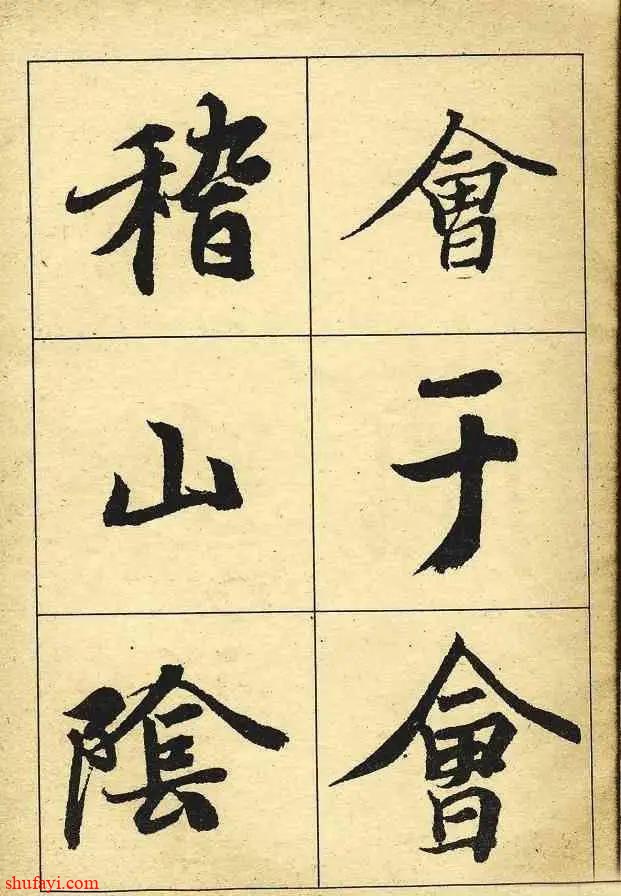 會于會
稽山陰
shufayi.com